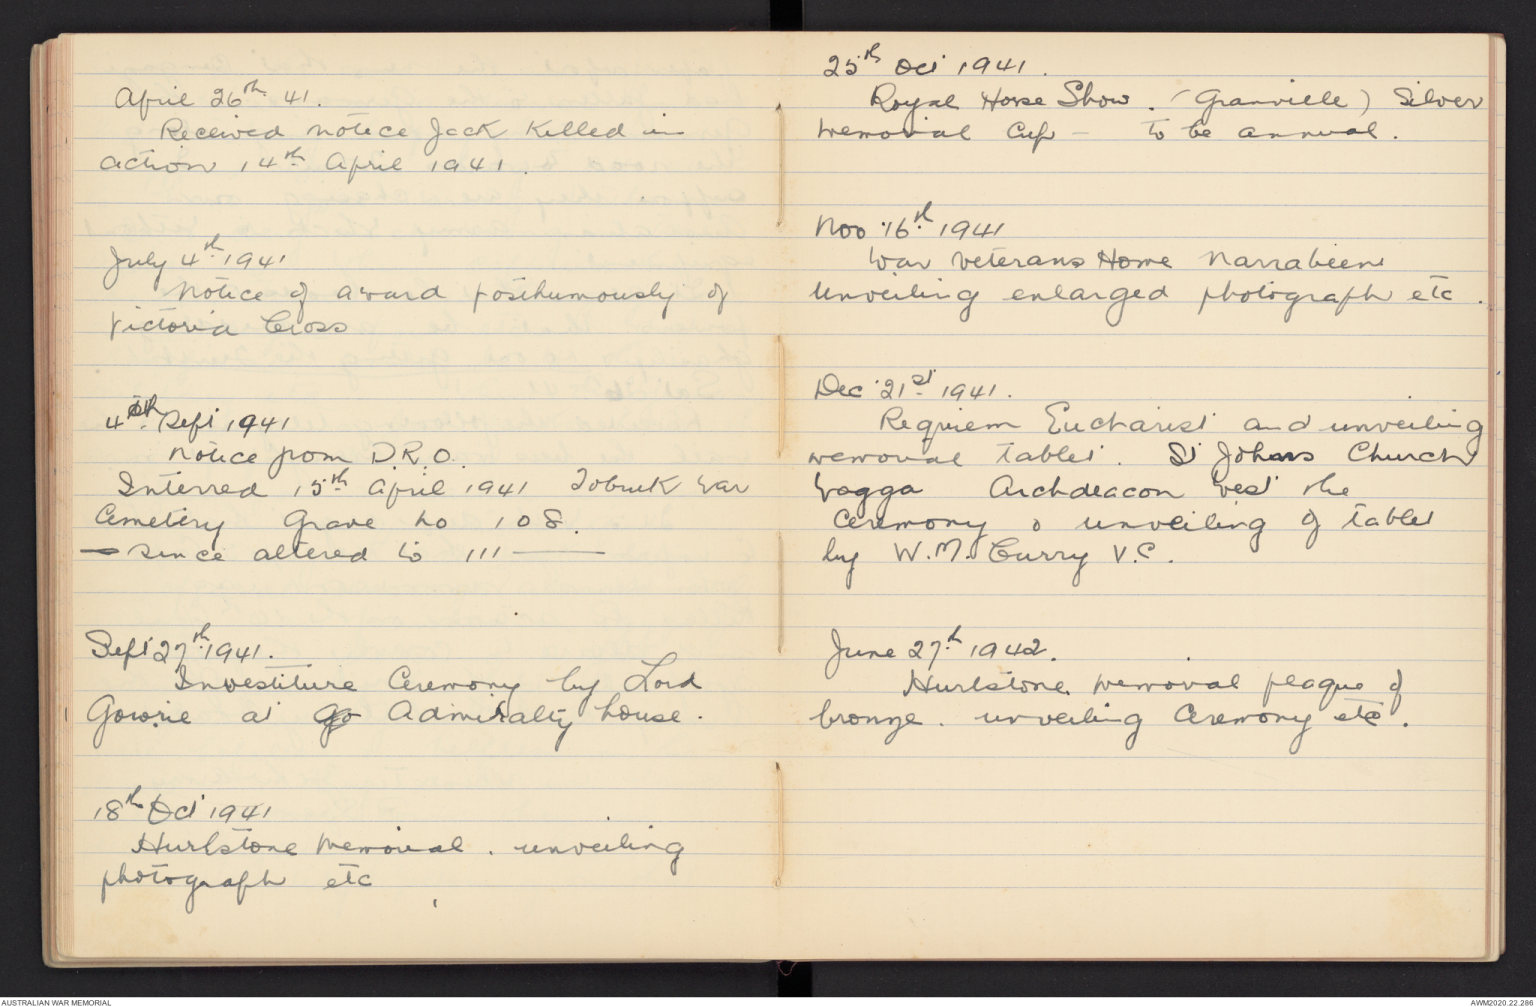 April 26th 41.
Received notice Jack killed in
action 14th April 1941.
July 4th 1941
Notice of award posthumously of
Victoria Cross
4th Sept 1941
Notice from D.R.O.
Interred 15th April 1941 Tobruk War
Cemetery Grave No 108.
— since altered to 111 —
Sept 27th 1941.
Investiture Ceremony by Lord
Gowrie at Admiralty house.
18th Oct 1941
Hurlstone Memorial. unveiling
photograph etc
25th Oct 1941.
Royal Horse Show. (Granville) Silver
Memorial Cup — to be annual.
Nov 16th 1941
War Veterans Home Narrabeen
Unveiling enlarged photograph etc.
Dec 21st 1941.
Requiem Eucharist and unveiling
memorial tablet. St Johns Church
Wagga Archdeacon West the
Ceremony & unveiling of tablet
by W.M. Curry V.C.
June 27th 1942.
Hurlstone memorial plaque of
bronze. unveiling Ceremony etc.
AUSTRALIAN WAR MEMORIAL
AWM2020.22.286